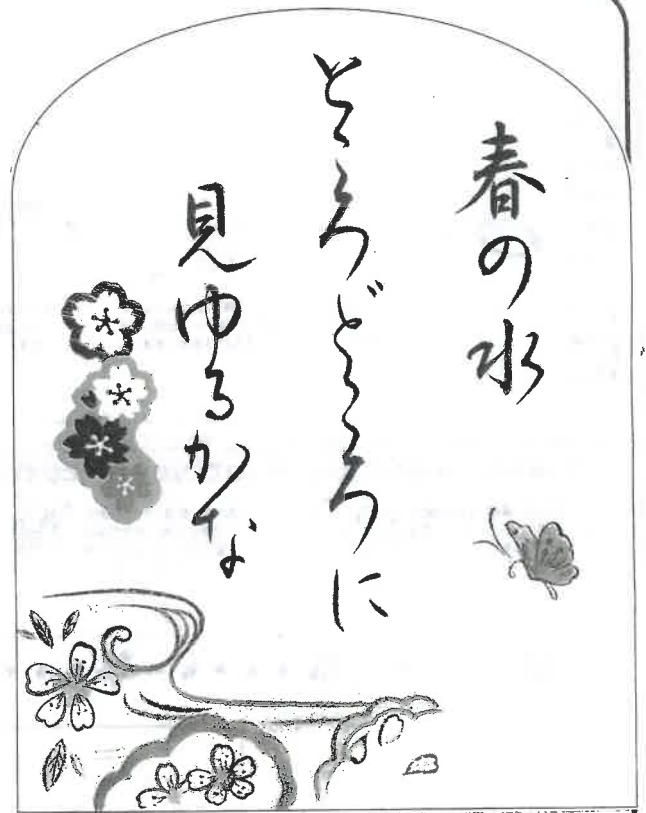 春の水
ところどころに
見ゆるかな